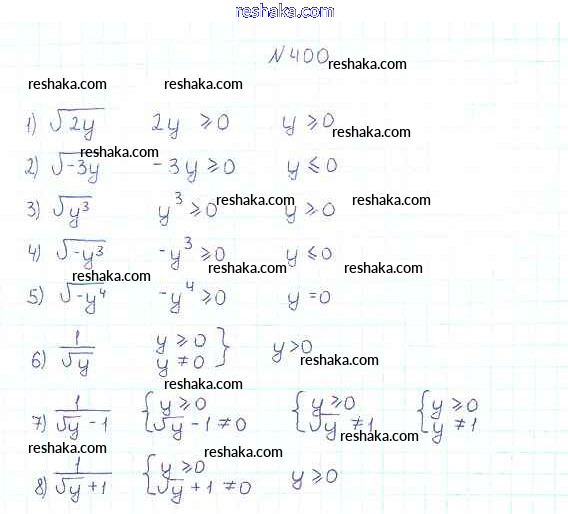 reshaka.com
№400
reshaka.com
reshaka.com reshaka.com
1) √2y 2y ≥ 0 y ≥ 0
reshaka.com
reshaka.com
2) √-3y -3y ≥ 0 y ≤ 0
reshaka.com reshaka.com
3) √y³ y³ ≥ 0 y ≥ 0
4) √-y³ -y³ ≥ 0 y ≤ 0
reshaka.com reshaka.com reshaka.com
5) √-y⁴ -y⁴ ≥ 0 y = 0
6) 1/√y y ≥ 0 y ≠ 0 } y > 0
reshaka.com
reshaka.com
7) 1/(√y - 1) { y ≥ 0 √y - 1 ≠ 0 { y ≥ 0 √y ≠ 1 { y ≥ 0 y ≠ 1
reshaka.com
reshaka.com reshaka.com
8) 1/(√y + 1) { y ≥ 0 √y + 1 ≠ 0 y ≥ 0